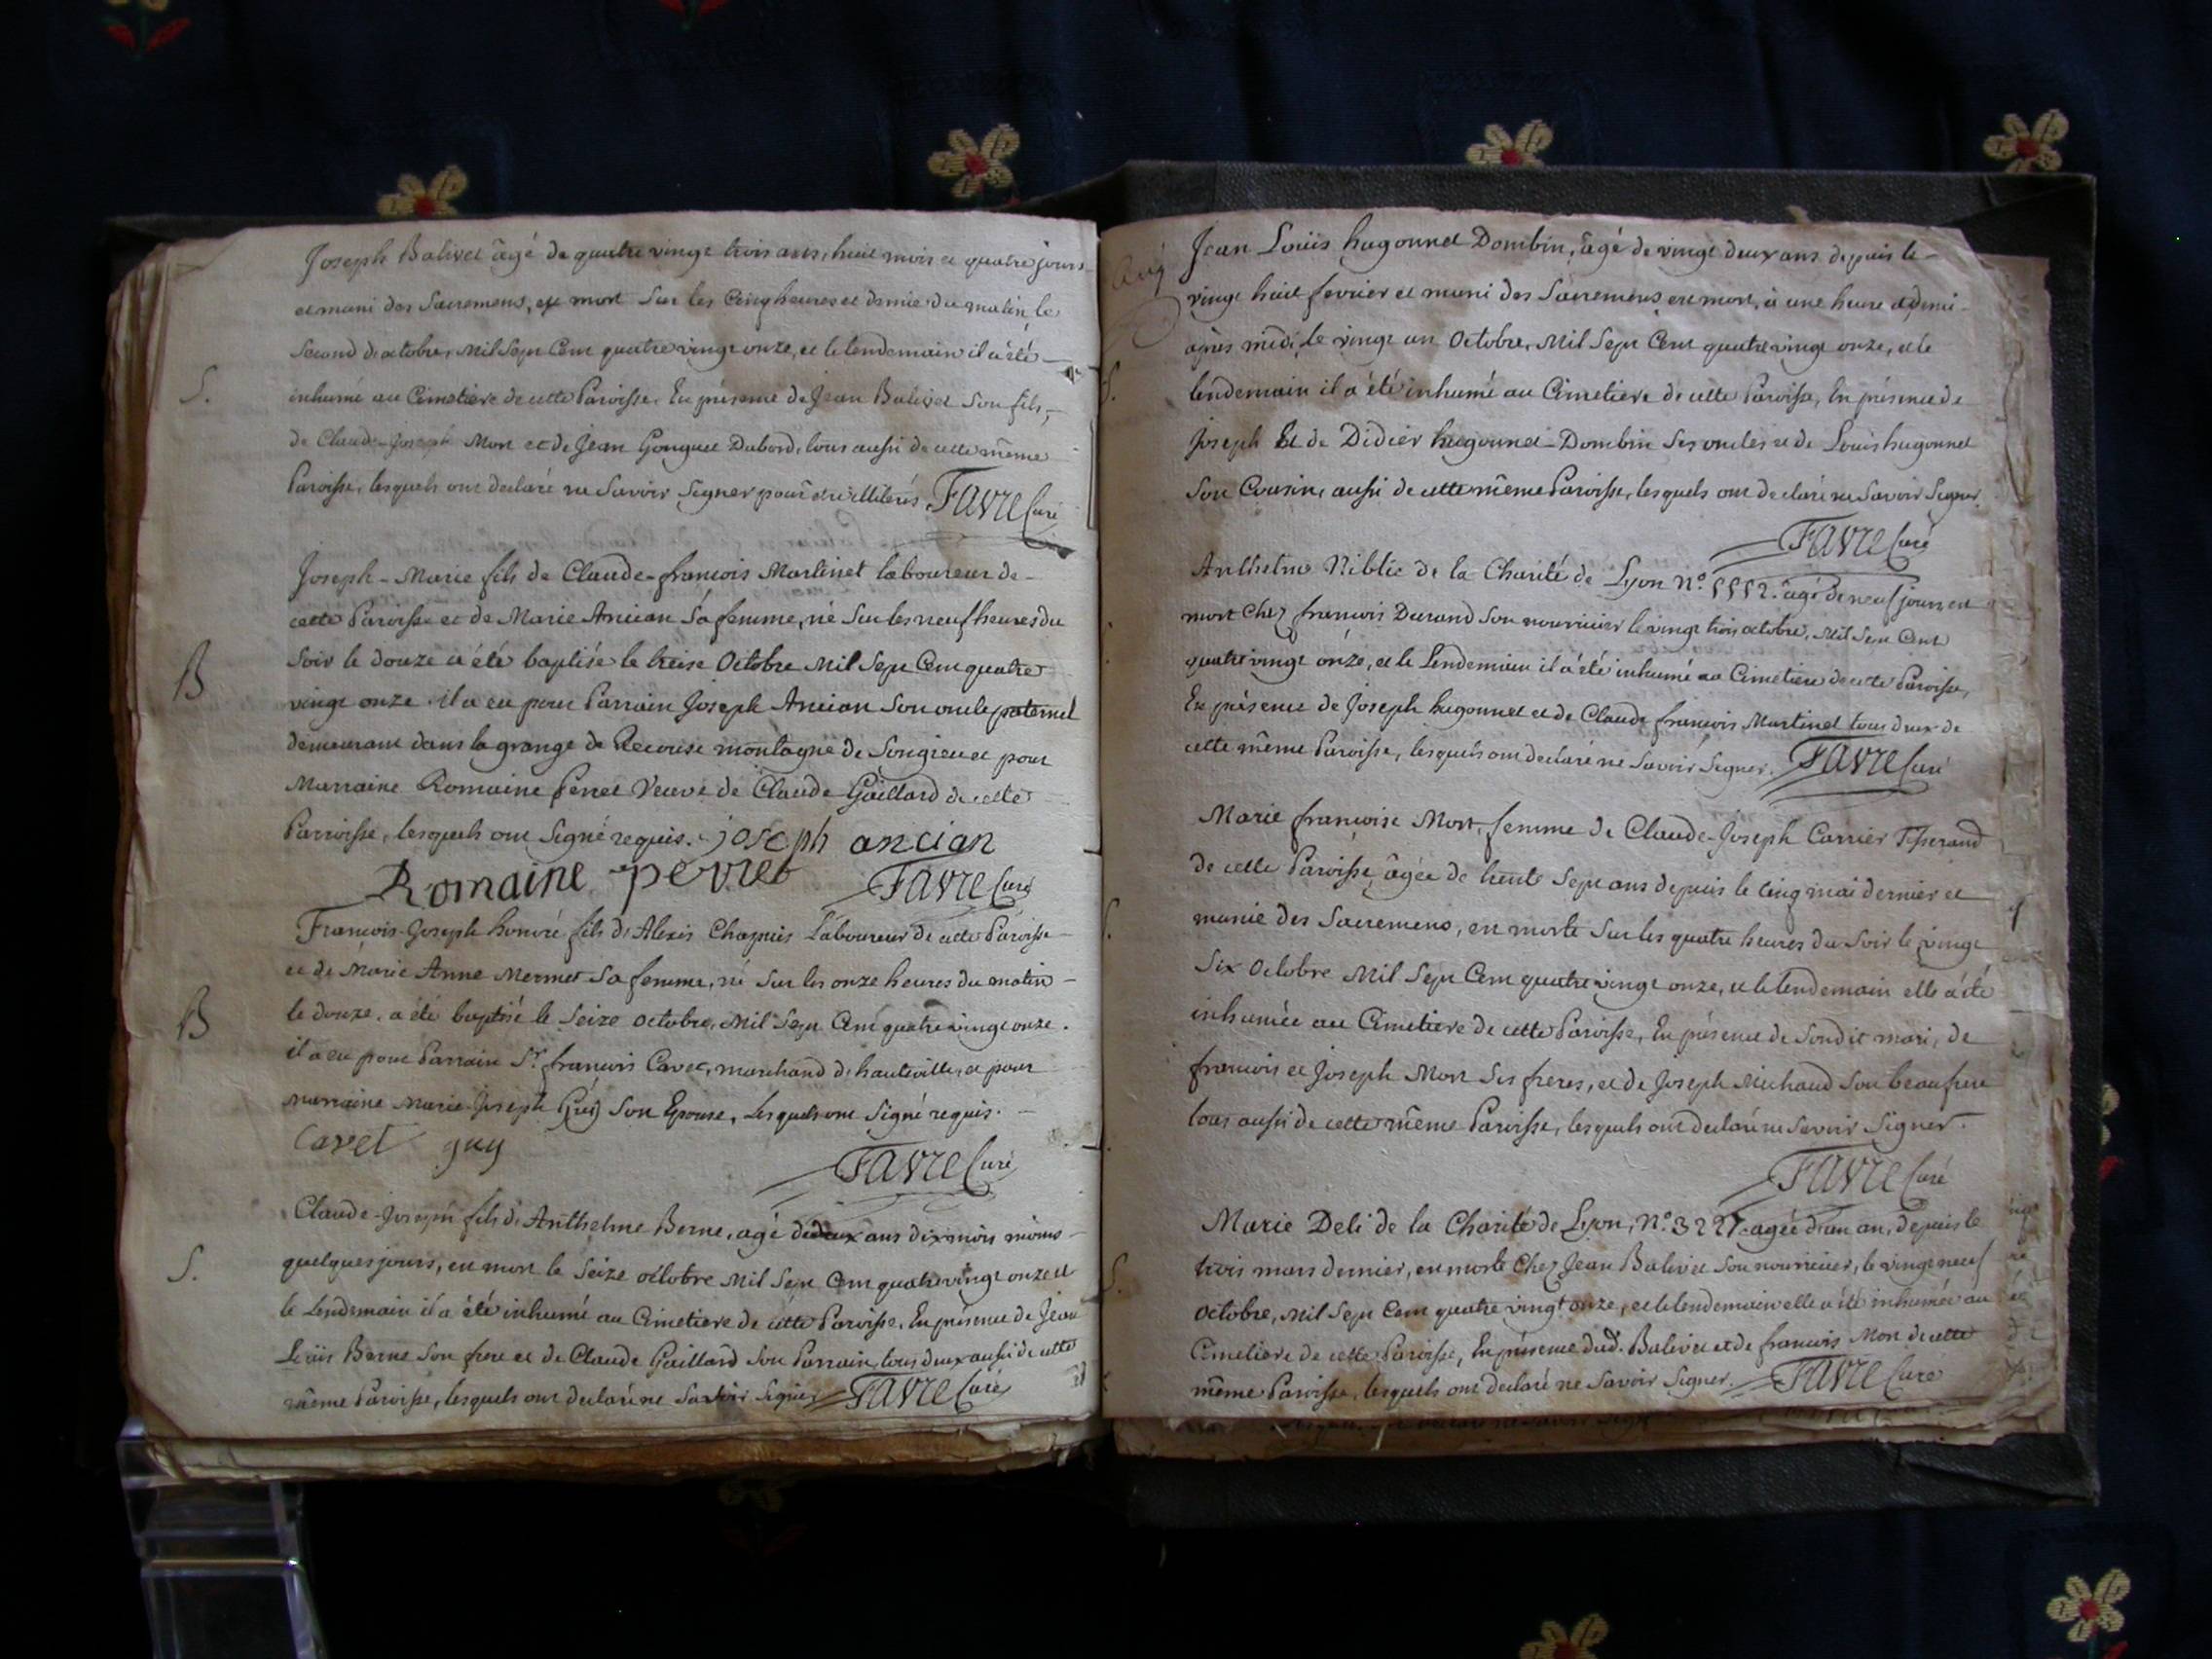 Joseph Balivet âgé de quatre vingt trois ans, huit mois et quatre jours
et muni des Sacremens, est mort Sur les Cinq heures et demie du matin le
Second d'octobre, Mil Sept Cent quatre vingt onze, et le lendemain il a été
S.
inhumé au Cimetiere de cette Paroisse. En présence de Jean Balivet Son fils,
de Claude-Joseph Mort et de Jean Gonguet Dubord, tous aussi de cette même
Paroisse, lesquels ont declaré ne Savoir Signer pour être illiterés. Favre Curé
Joseph-Marie fils de Claude-francois Martinet laboureur de
cette Paroisse et de Marie Ancian Sa femme, né Sur les neuf heures du
B
Soir le douze a été baptisé le treise Octobre Mil Sept Cent quatre
vingt onze. il a eu pour Parrain Joseph Ancian Son oncle paternel
demeurant dans la grange de Recouse montagne de Songieu et pour
Marraine Romaine Perret Veuve de Claude Gaillard de cette
Parroisse, lesquels ont Signé requis. joseph ancian
Romaine perret Favre Curé
Francois-Joseph honoré fils d'Alexis Chapuis Laboureur de cette Paroisse
et de Marie Anne Mermet Sa femme, né Sur les onze heures du matin
B
le douze, a été baptisé le Seize octobre, Mil Sept Cent quatre vingt onze.
il a eu pour Parrain Sr. francois Cavet, marchand d'hauteville, et pour
marraine Marie-Joseph Guy Son Epouse, Lesquels ont Signé requis.
Cavet guy
Favre Curé
Claude-Joseph fils d'Anthelme Berne, agé de deux ans dix mois moins
S.
quelques jours, est mort le Seize octobre Mil Sept Cent quatre vingt onze et
le Lendemain il a été inhumé au Cimetiere de cette Paroisse. En présence de Jean
Loüis Berne Son frere et de Claude Gaillard Son Parrain, tous deux aussi de cette
même Paroisse, lesquels ont declaré ne Savoir Signer Favre Curé
Jean Loüis hugonnet Dombin, âgé de vingt deux ans depuis le
vingt huit fevrier et muni des Sacremens est mort, à une heure et demi
après midi, le vingt un Octobre, Mil Sept Cent quatre vingt onze, et le
S.
lendemain il a été inhumé au Cimetiere de cette Paroisse, En présence de
Joseph Et de Didier hugonnet-Dombin Ses oncles et de Louis hugonnet
Son Cousin, aussi de cette même Paroisse, lesquels ont declaré ne Savoir Signer.
Favre Curé
Anthelme Niblic de la Charité de Lyon No. 5552. âgé de neuf jours est
mort Chez francois Durand Son nourricier le vingt trois octobre, Mil Sept Cent
quatre vingt onze, et le Lendemain il a été inhumé au Cimetiere de cette Paroisse,
En présence de Joseph hugonnet et de Claude francois Martinet tous deux de
cette même Paroisse, lesquels ont declaré ne Savoir Signer. Favre Curé
Marie francoise Mort, femme de Claude-Joseph Carrier Tisserand
de cette Paroisse, âgée de trente Sept ans depuis le cinq mai dernier et
S.
munie des Sacremens, est morte Sur les quatre heures du Soir le vingt
Six Octobre Mil Sept Cent quatre vingt onze, et le lendemain elle a été
inhumée au Cimetiere de cette Paroisse, En présence de Son dit mari, de
francois et Joseph Mort Ses freres, et de Joseph Michaud Son beau frere
tous aussi de cette même Paroisse, lesquels ont declaré ne Savoir Signer.
Favre Curé
Marie Deli de la Charité de Lyon, No. 3227. agée d'un an, depuis le
S.
trois mars dernier, est morte Chez Jean Balivet Son nourricier, le vingt neuf
Octobre, Mil Sept Cent quatre vingt onze, et le lendemain elle a été inhumée au
Cimetiere de cette Paroisse, En présence dud. Balivet et de francois Mort de cette
même Paroisse, lesquels ont declaré ne Savoir Signer. Favre Curé